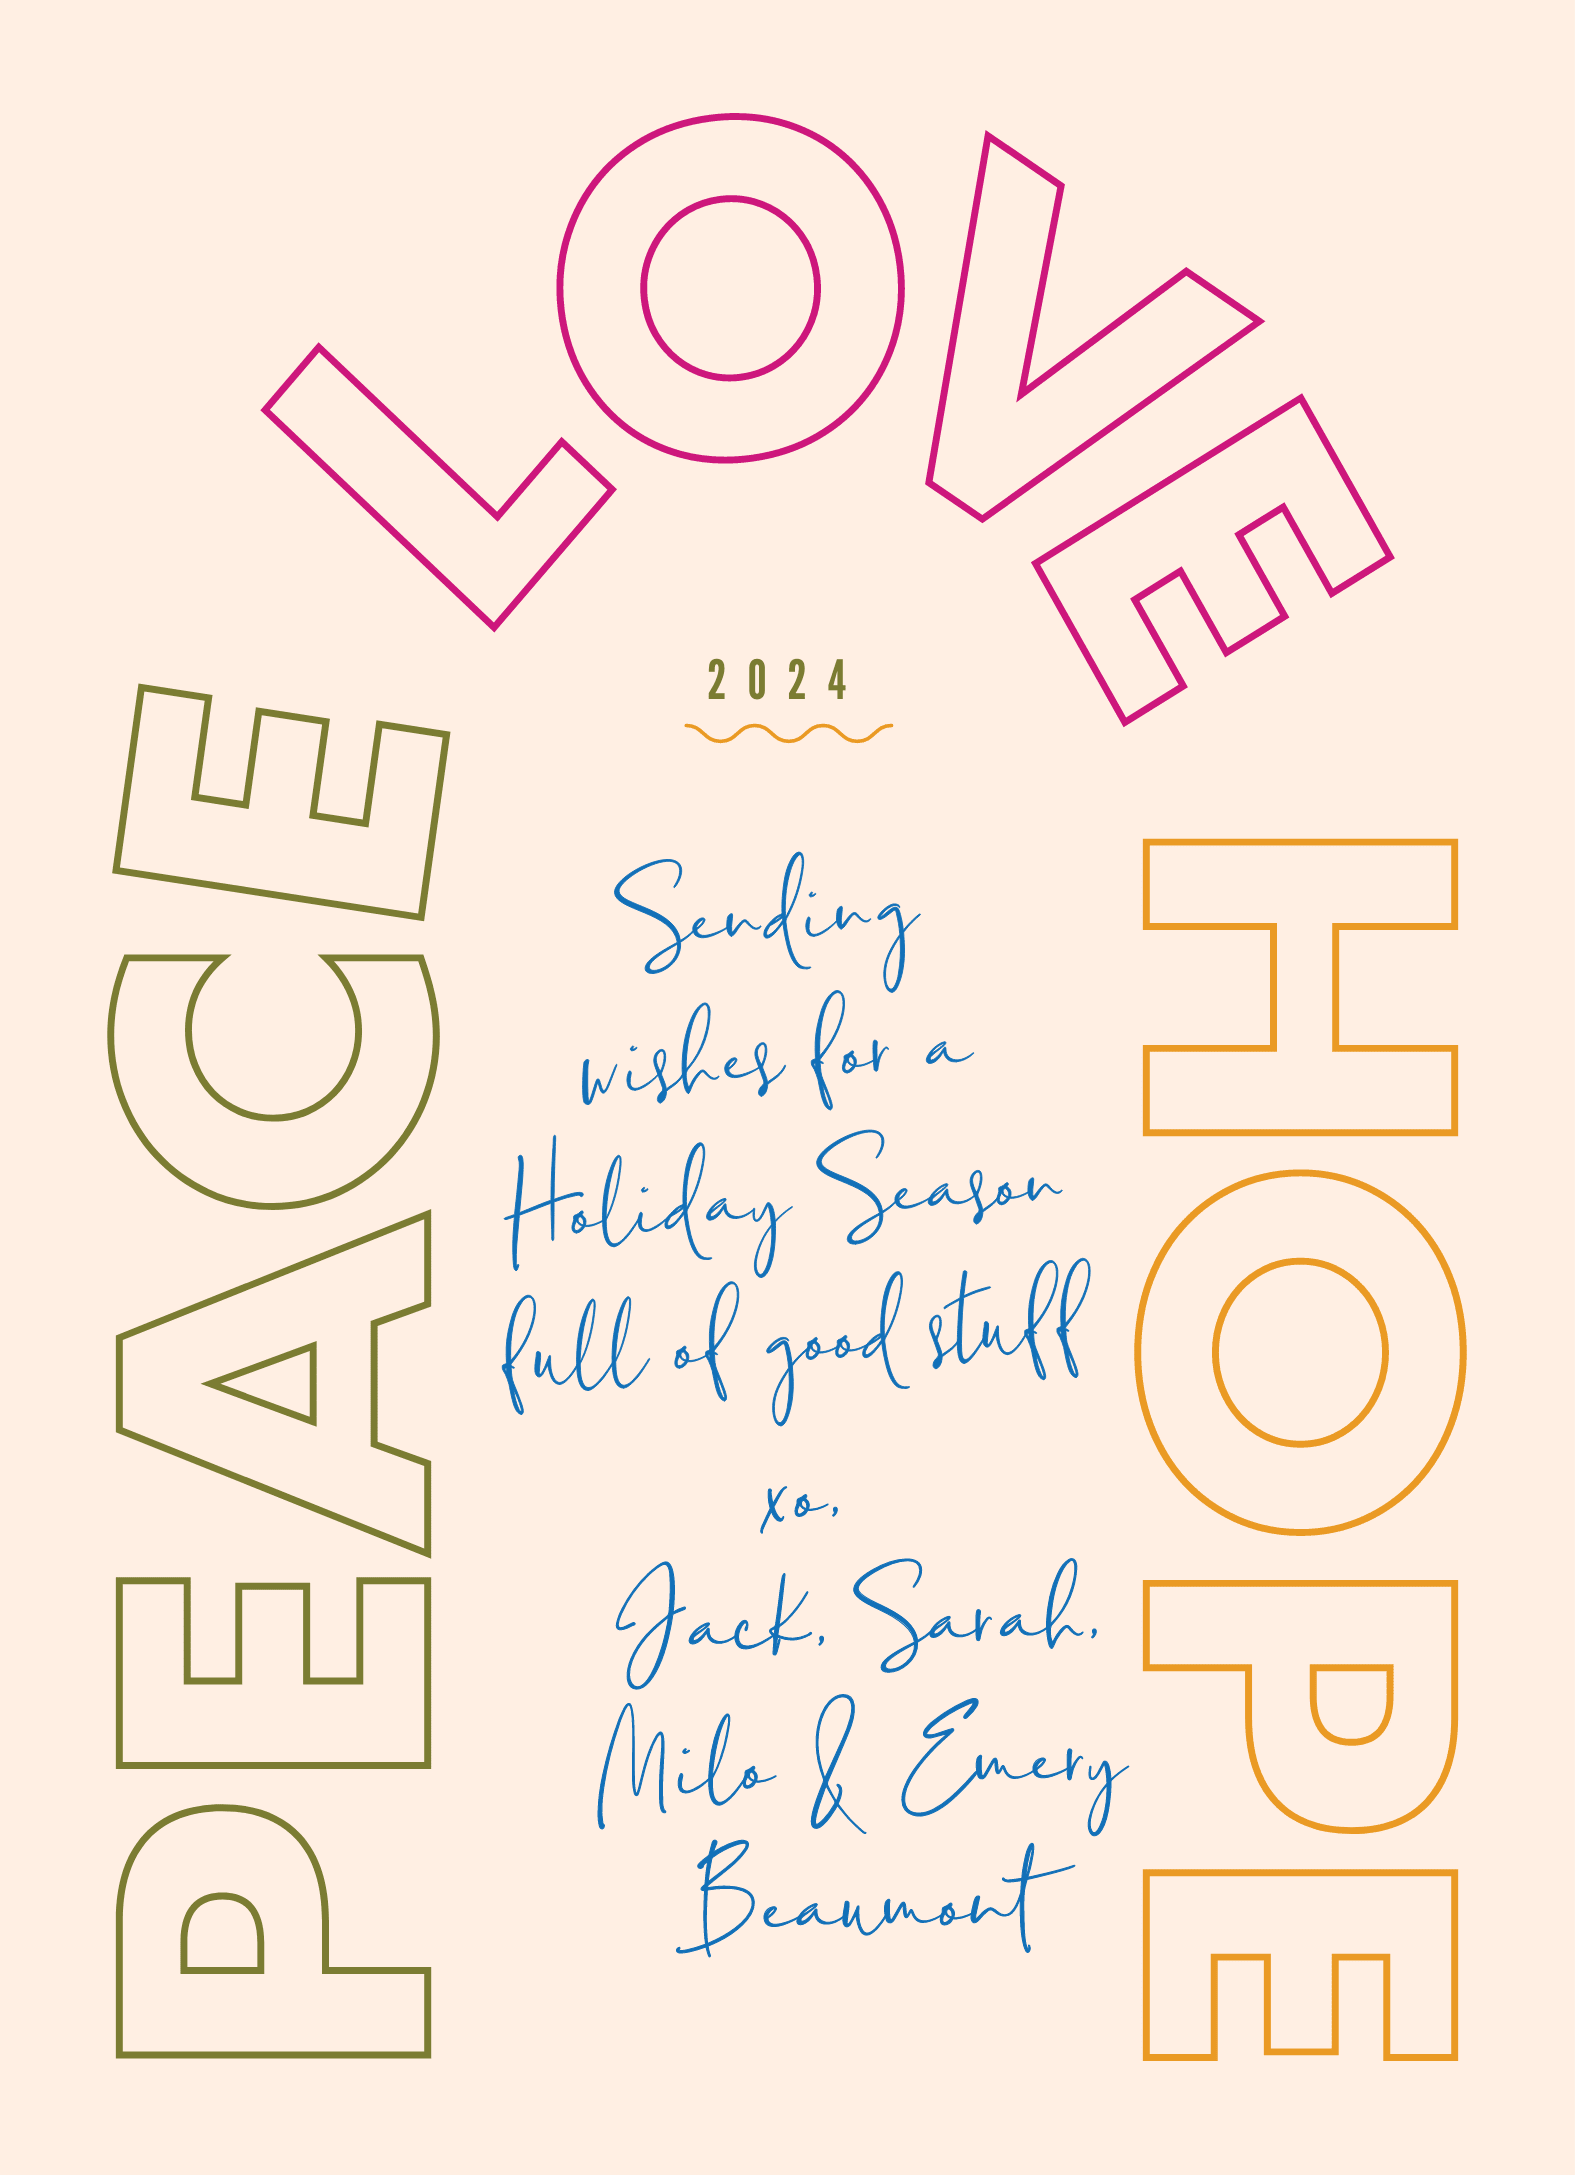 PEACE
LOVE
HOPE
2024
Sending
wishes for a
Holiday Season
full of good stuff
xo,
Jack, Sarah,
Milo & Emery
Beaumont